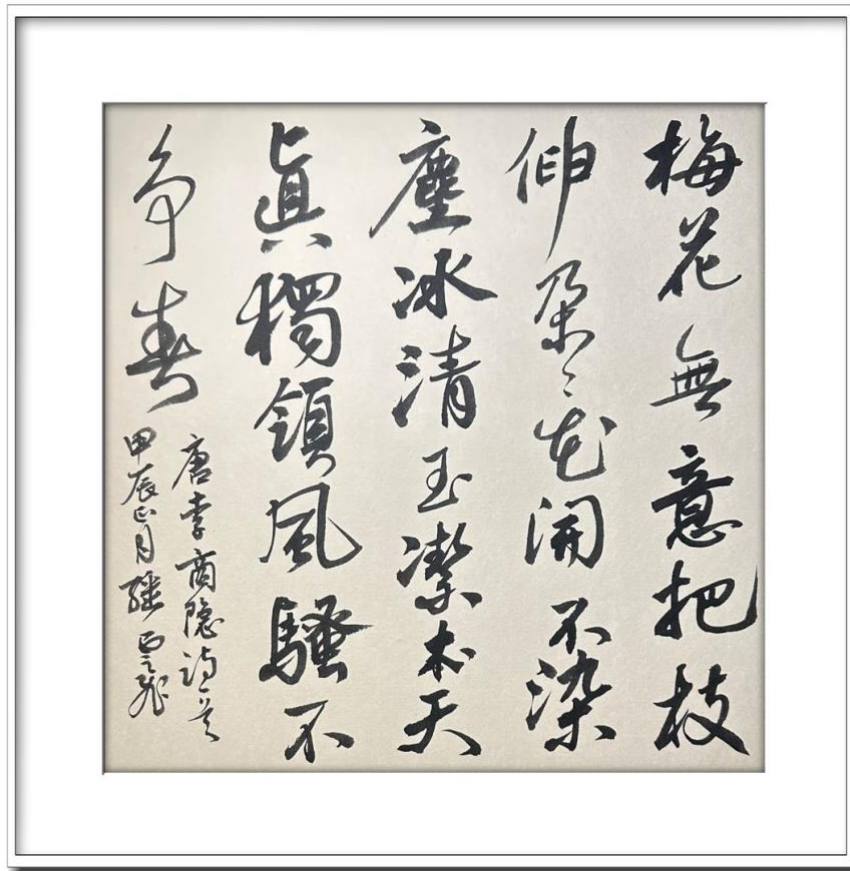 梅花無意把枝
伸朵〻花開不染
塵冰清玉潔本天
眞獨領風騷不
争春
唐李商隐诗一首
甲辰正月